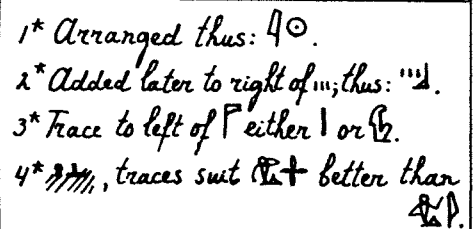 1* Arranged thus: 𓇋𓇳.
2* Added later to right of ; thus: .
3* Trace to left of 𓊹 either or .
4* , traces suit better than
.